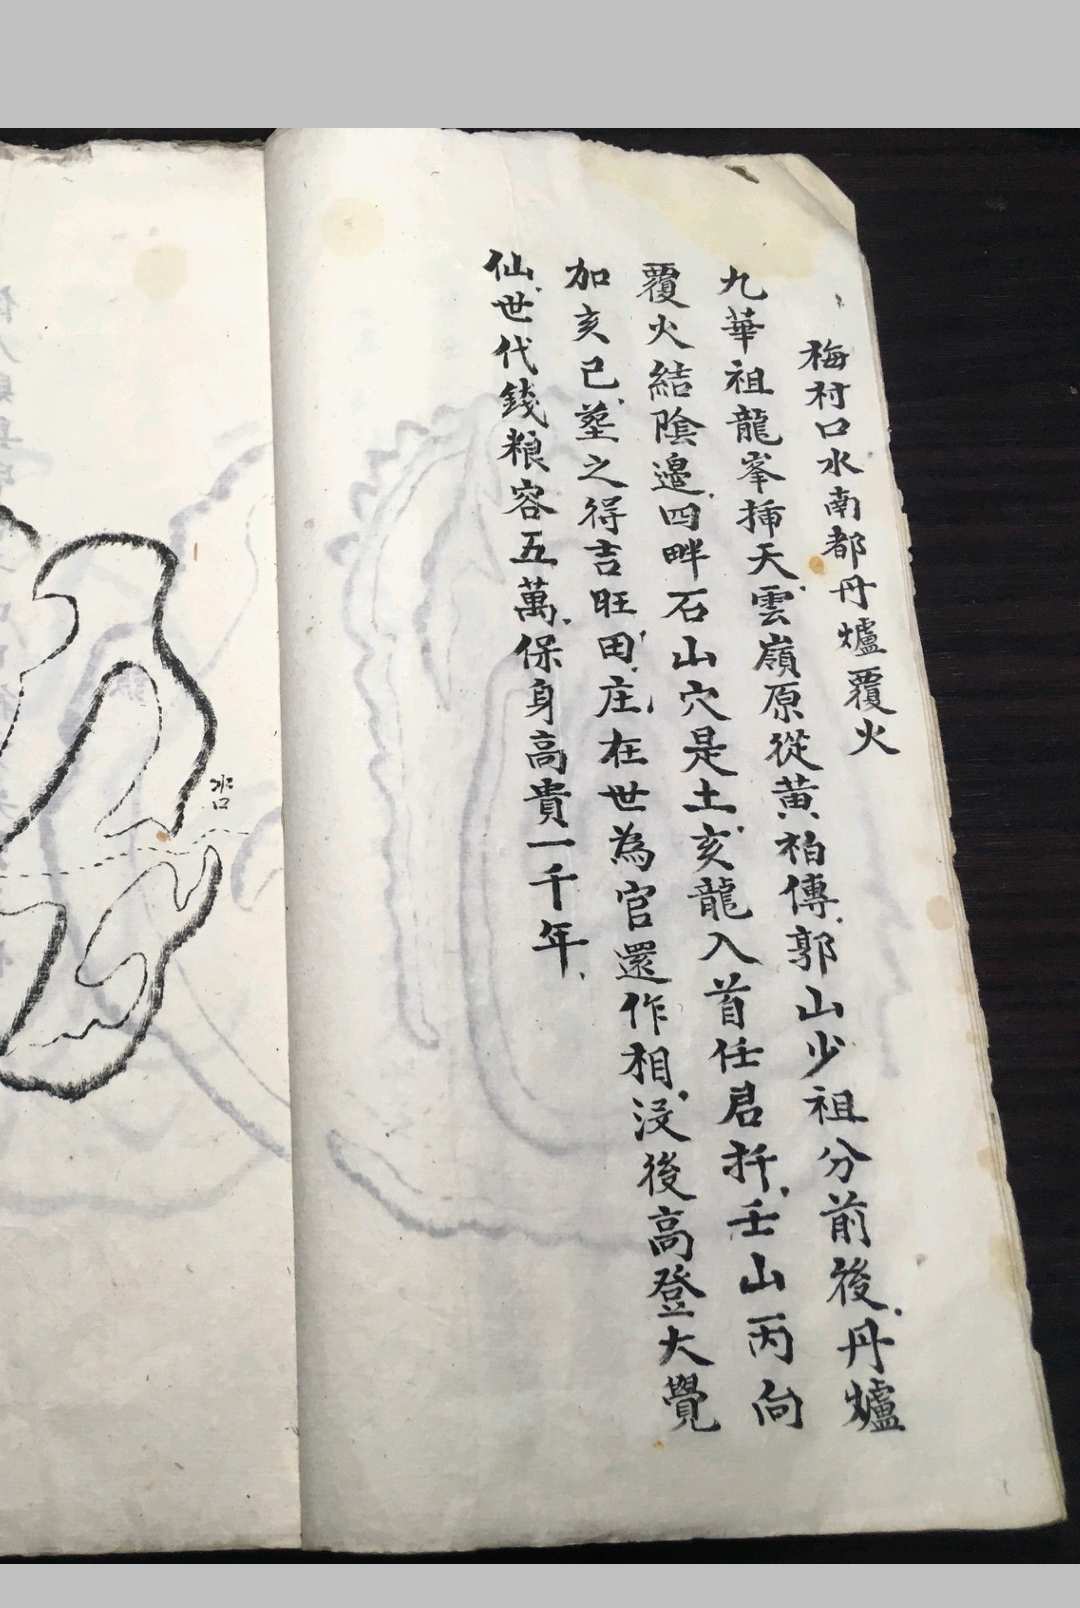 梅村口水南都丹爐覆火
九華祖龍峯揷天雲嶺原從黃柏傳郭山少祖分前後丹爐
覆火結陰邉四畔石山穴是土亥龍入首任君扦壬山丙向
加亥己塟之得吉旺田庄在世為官還作相没後高登大覺
仙世代錢粮容五萬保身高貴一千年
水口